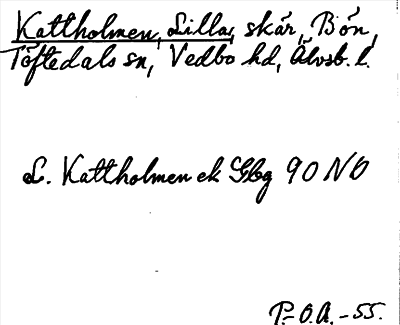 Kattholmen, Lilla, skär, Bön,
Töftedals sn, Vedbo hd, Älvsb. l.
L. Kattholmen ek Gbg 90 NO
P.-O.A. -55.